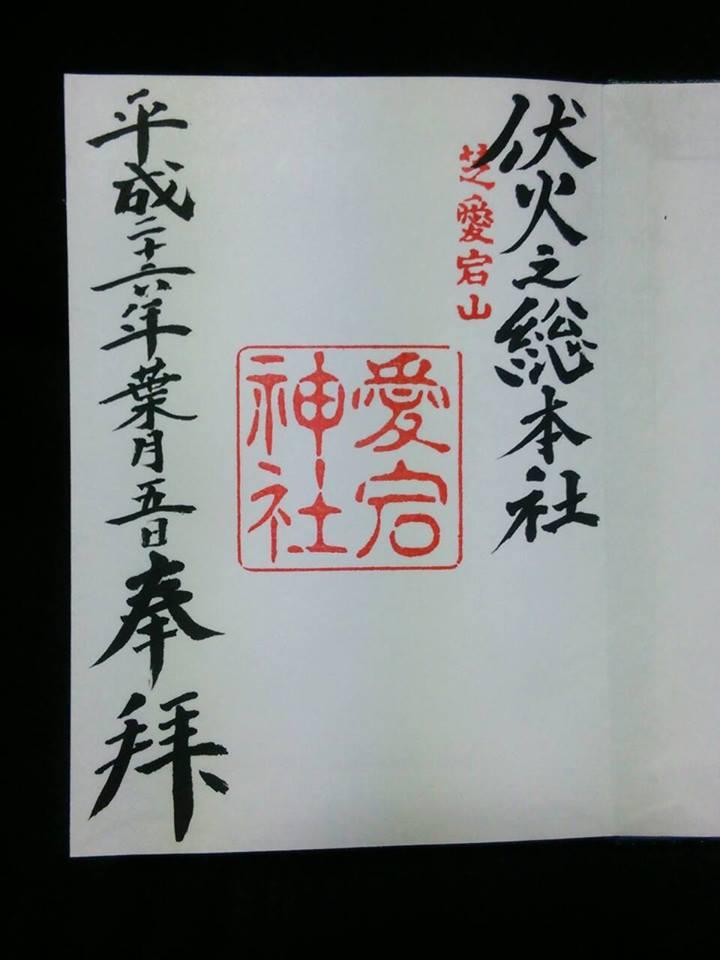 伏火之総本社
芝愛宕山
愛宕
神社
平成二十六年葉月五日奉拜